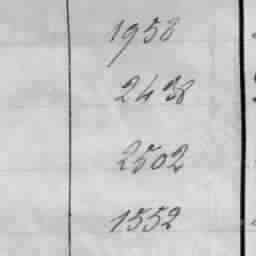 1958
2438
2502
1552